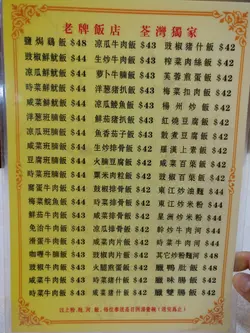 老牌飯店 荃灣獨家
鹽焗鷄飯 $48 凉瓜牛肉飯 $43 豉椒猪什飯 $42
豉椒鮮魷飯 $44 生炒牛肉飯 $43 榨菜肉絲飯 $42
凉瓜鮮魷飯 $44 萝卜牛腩飯 $43 芙蓉煎蛋飯 $42
時菜鮮魷飯 $44 洋葱猪扒飯 $43 梅菜扣肉飯 $42
咸菜鮮魷飯 $44 凉瓜 $43 楊州炒飯 $42
洋葱班腩飯 $44 鮮茄猪扒飯 $43 紅燒豆腐飯 $42
凉瓜班腩飯 $44 魚香茄子飯 $43 飯 $42
時菜班腩飯 $44 生炒排骨飯 $43 羅漢上素飯 $42
咸菜班腩飯 $44 火腩豆腐飯 $42 咸菜百葉飯 $42
豆腐班腩飯 $44 粟米肉粒飯 $42 豉椒百葉飯 $42
窩蛋牛肉飯 $44 豉椒排骨飯 $42 東江炒油麵 $44
梅菜鯇魚飯 $44 時菜排骨飯 $42 東江炒米粉 $44
鮮茄牛肉飯 $43 咸菜排骨飯 $42 星洲炒米粉 $44
免治牛肉飯 $43 凉瓜排骨飯 $42 干炒牛肉河 $44
滑蛋牛肉飯 $43 咸菜肉片飯 $42 時菜牛肉河 $44
咖喱牛腩飯 $43 時菜肉片飯 $42 其它炒粉麵河 $44
豉椒牛肉飯 $43 火腿煎蛋飯 $42 臘鴨肶飯 $50
咸菜牛肉飯 $43 咸菜猪什飯 $42 臘味腸飯 $50
時菜牛肉飯 $43 時菜猪什飯 $42 臘雙腸飯 $50